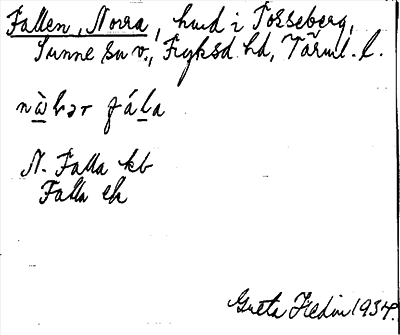 Fallen, Norra, hmd i Torseberg,
Sunne sn v., Fryksd. hd, Värml. l.
nὼrər fála
N. Falla kb
Falla ek
Greta Hedin 1934.